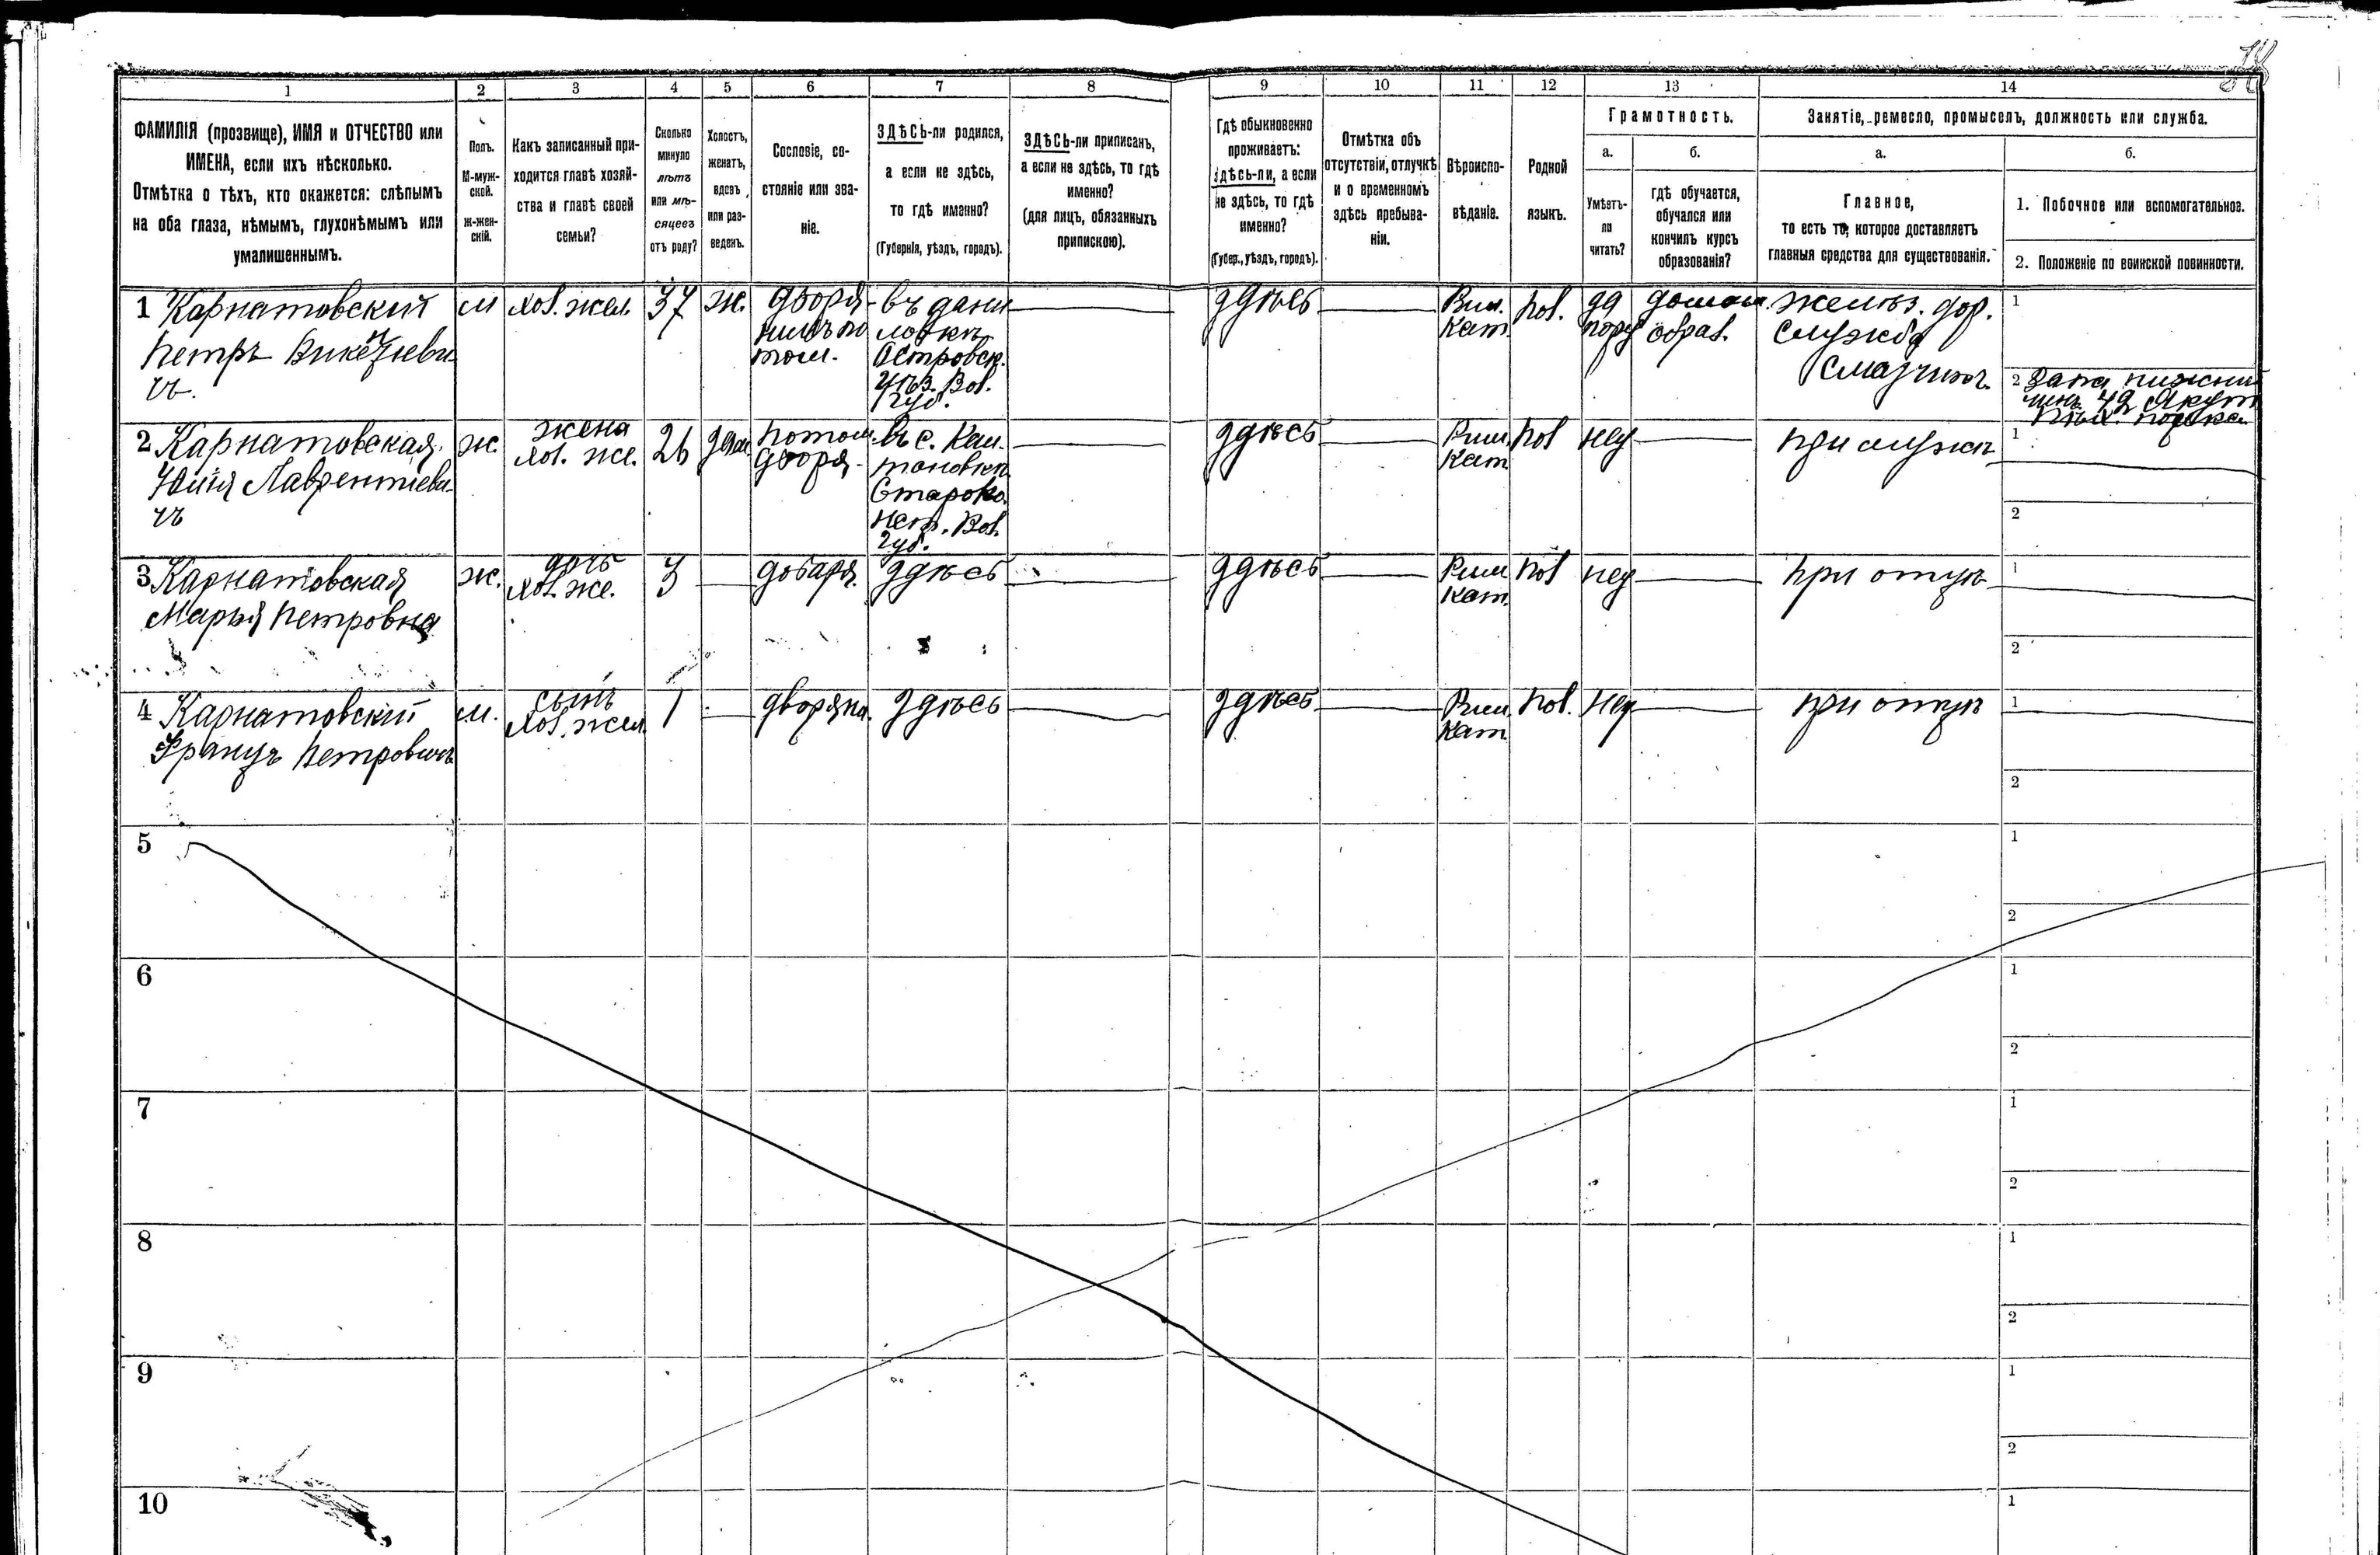 1 2 3 4 5 6 7 8 9 10 11 12 13 14
ФАМИЛІЯ (прозвище), ИМЯ и ОТЧЕСТВО или
ИМЕНА, если ихъ нѣсколько.
Отмѣтка о тѣхъ, кто окажется: слѣпымъ
на оба глаза, нѣмымъ, глухонѣмымъ или
умалишеннымъ.
Полъ.
М-муж-
ской.
ж-жен-
скій.
Какъ записанный при-
ходится главѣ хозяй-
ства и главѣ своей
семьи?
Сколько
минуло
лѣтъ
или мѣ-
сяцевъ
отъ роду?
Холостъ,
женатъ,
вдовъ
или раз-
веденъ.
Сословіе, со-
стояніе или зва-
ніе.
ЗДѢСЬ-ли родился,
а если не здѣсь,
то гдѣ именно?
(Губернія, уѣздъ, городъ).
ЗДѢСЬ-ли приписанъ,
а если не здѣсь, то гдѣ
именно?
(для лицъ, обязанныхъ
припискою).
Гдѣ обыкновенно
проживаетъ:
здѣсь-ли, а если
не здѣсь, то гдѣ
именно?
(Губер., уѣздъ, городъ).
Отмѣтка объ
отсутствіи, отлучкѣ
и о временномъ
здѣсь пребыва-
ніи.
Вѣроиспо-
вѣданіе.
Родной
языкъ.
Грамотность.
а.
Умѣетъ-
ли
читать?
б.
гдѣ обучается,
обучался или
кончилъ курсъ
образованія?
Занятіе, ремесло, промыселъ, должность или служба.
а.
Главное,
то есть то, которое доставляетъ
главныя средства для существованія.
б.
1. Побочное или вспомогательное.
2. Положеніе по воинской повинности.
1 Карнатовскій
Петръ Викентіеви-
чъ.
м
37
ж.
дворя-
Островск.
уѣз. Вол.
губ.
здѣсь
Рим.
Кат.
Пол.
да
образ.
желѣз. дор.
служба
Смазчикъ.
1
2
2 Карнатовская
Юлія Лаврентіеви-
чъ
ж.
жена
26
потом.
дворя-
въ с.
Староко.
Вол.
губ.
здѣсь
Рим.
Кат.
Пол
нет
при мужѣ
1
2
3 Карнатовская
Марья Петровна
ж.
дочь
3
здѣсь
здѣсь
Рим
Кат.
Пол
нет
при отцѣ
1
2
4 Карнатовскій
Францъ Петровичъ
м.
сынъ
1
дворян.
здѣсь
здѣсь
Рим.
Кат.
Пол.
нет
при отцѣ
1
2
5
1
2
6
1
2
7
1
2
8
1
2
9
1
2
10
1